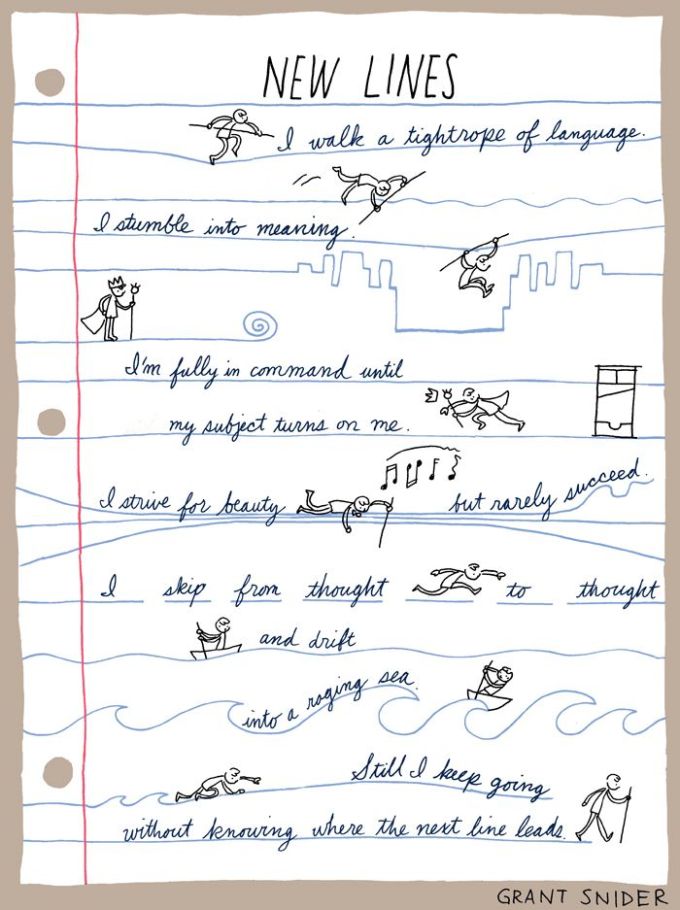 NEW LINES
I walk a tightrope of language.
I stumble into meaning.
I'm fully in command until
my subject turns on me.
I strive for beauty but rarely succeed.
I skip from thought to thought
and drift
into a raging sea.
Still I keep going
without knowing where the next line leads.
GRANT SNIDER